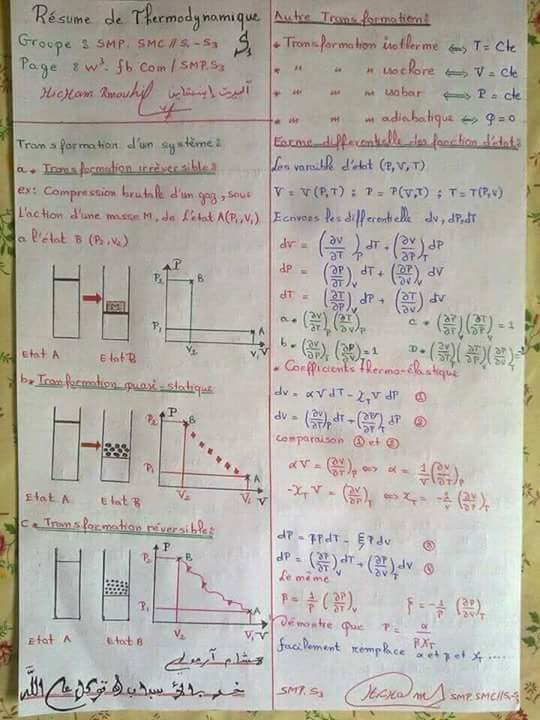 Résume de Thermodynamique
Groupe : SMP. SMC // S1 - S3
Page : w³. fb Com / SMP.S3
S3
Transformation d'un système :
a * Transformation irréversible :
ex: Compression brutale d'un gaz, sous
L'action d'une masse M, de l'état A(P1,V1)
a l'état B (P2,V2)
P
P2
B
M
P1
A
V2
V1
V
Etat A
Etat B
b * Tranformation quasi-statique
P
P2
B
P1
A
V2
V1
V
Etat A
Etat B
c * Transformation réversible :
P
P2
B
P1
A
V2
V
Etat A
Etat B
Autre Transformation :
* Transformation isotherme ⟺ T = Cte
" " " isochore ⟺ V = Cte
" " " isobar ⟺ P = cte
" " " adiabatique ⟺ Q = 0
Forme differentielle des fonction d'état :
Les varaible d'état (P, V, T)
V = V(P,T) ; P = P(V,T) ; T = T(P,V)
Ecrivons les differentielle dv, dP, dT
dv = (∂V/∂T)P dT + (∂V/∂P)T dP
dP = (∂P/∂T)V dT + (∂P/∂V)T dV
dT = (∂T/∂P)V dP + (∂T/∂V) dV
a * (∂V/∂T)P (∂T/∂V)P
c * (∂P/∂T)(∂T/∂P)V = 1
b * (∂V/∂P)T (∂P/∂V)T = 1
* Coefficients thermo-élastique
dv = αV dT - χT V dP ①
dv = (∂V/∂T)P dT + (∂V/∂P)T dP ②
comparaison ① et ②
αV = (∂V/∂T)P ⟺ α = 1/V (∂V/∂T)P
-χT V = (∂V/∂P)T ⟺ χT = -1/V (∂V/∂P)T
dP = βP dT - ξ P dv ③
dP = (∂P/∂T)V dT + (∂P/∂V)T dv ④
Le même
β = 1/P (∂P/∂T)V
ξ = -1/P (∂P/∂V)T
Démontre que P = α/(β χT)
facilement remplace α et β et χT ....
SMP.S3
SMP.SMC//S1-S3